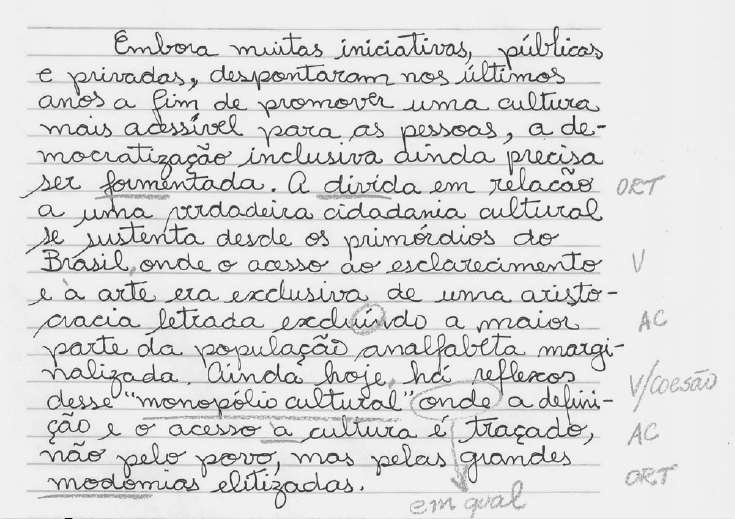 Embora muitas iniciativas, públicas
e privadas, despontaram nos últimos
anos a fim de promover uma cultura
mais acessível para as pessoas, a de-
mocratização inclusiva ainda precisa
ser formentada. A divida em relação ORT
a uma verdadeira cidadania cultural
se sustenta desde os primórdios do
Brasil onde o acesso ao esclarecimento V
e à arte era exclusiva de uma aristo-
cracia letrada excluíndo a maior AC
parte da população analfabeta margi-
nalizada. Ainda hoje há reflexos
desse "monopólio cultural" onde a defini- V/coesão
ção e o acesso a cultura é traçado, AC
não pelo povo, mas pelas grandes
modomias elitizadas. ORT
em qual